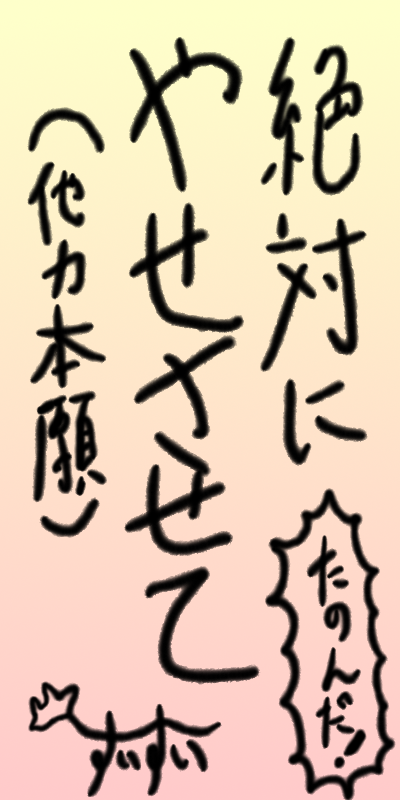 絶対に
やせさせて
（他力本願）
たのんだ！